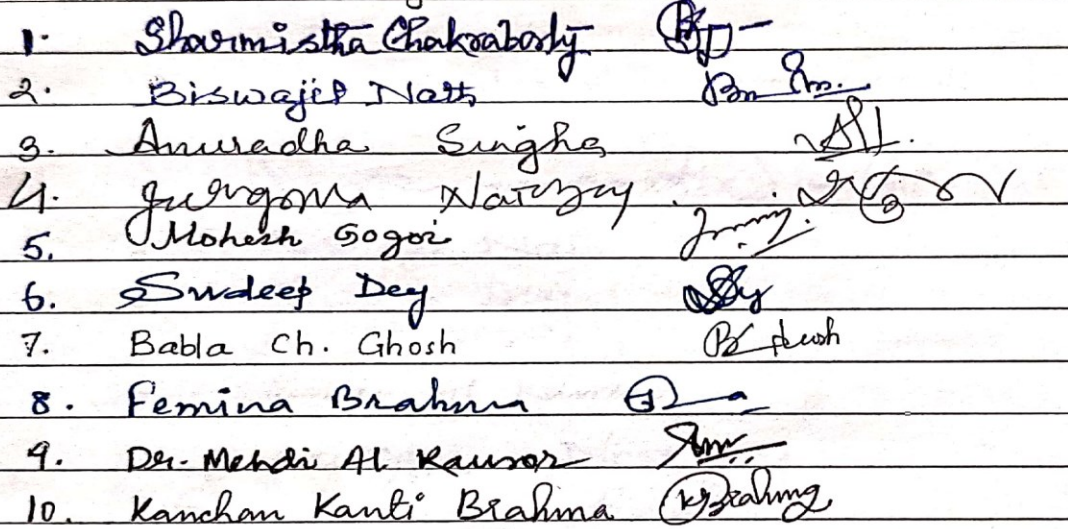 1. Sharmistha Chakraborty
2. Biswajit Nath
3. Anuradha Singha
4. Narzary
5. Mohesh Gogoi
6. Swdeep Dey
7. Babla Ch. Ghosh
8. Femina Brahma
9. Dr. Mehdi Al Kausor
10. Kanchan Kanti Brahma